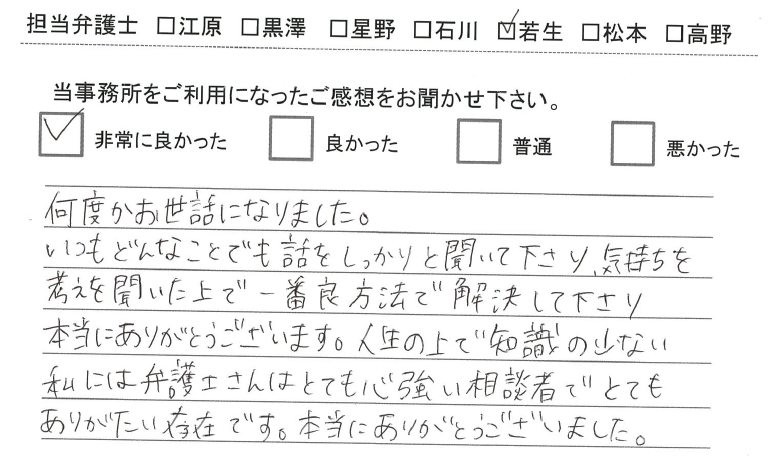 担当弁護士 □江原 □黒澤 □星野 □石川 ☑若生 □松本 □高野
当事務所をご利用になったご感想をお聞かせ下さい。
☑ 非常に良かった □ 良かった □ 普通 □ 悪かった
何度かお世話になりました。
いつもどんなことでも話をしっかりと聞いて下さり、気持ちを
考えを聞いた上で一番良方法で解決して下さり
本当にありがとうございます。人生の上で知識の少ない
私には弁護士さんはとても心強い相談者でとても
ありがたい存在です。本当にありがとうございました。